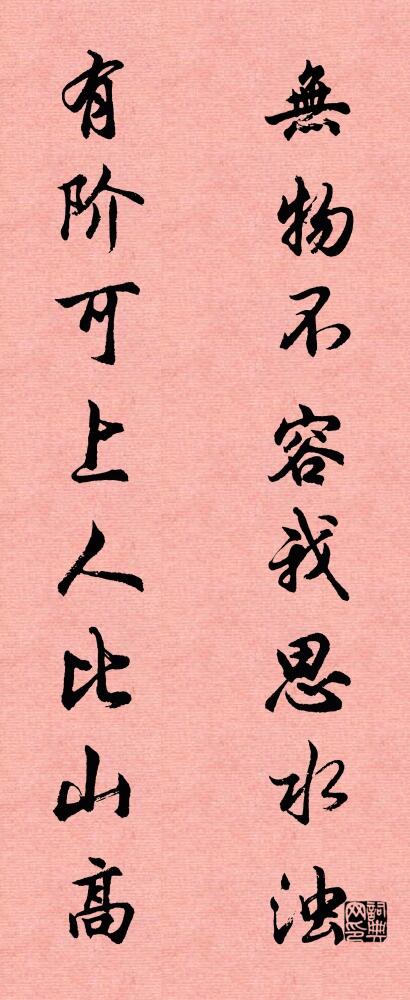 無物不容我思水浊
有阶可上人比山高
詞典网印